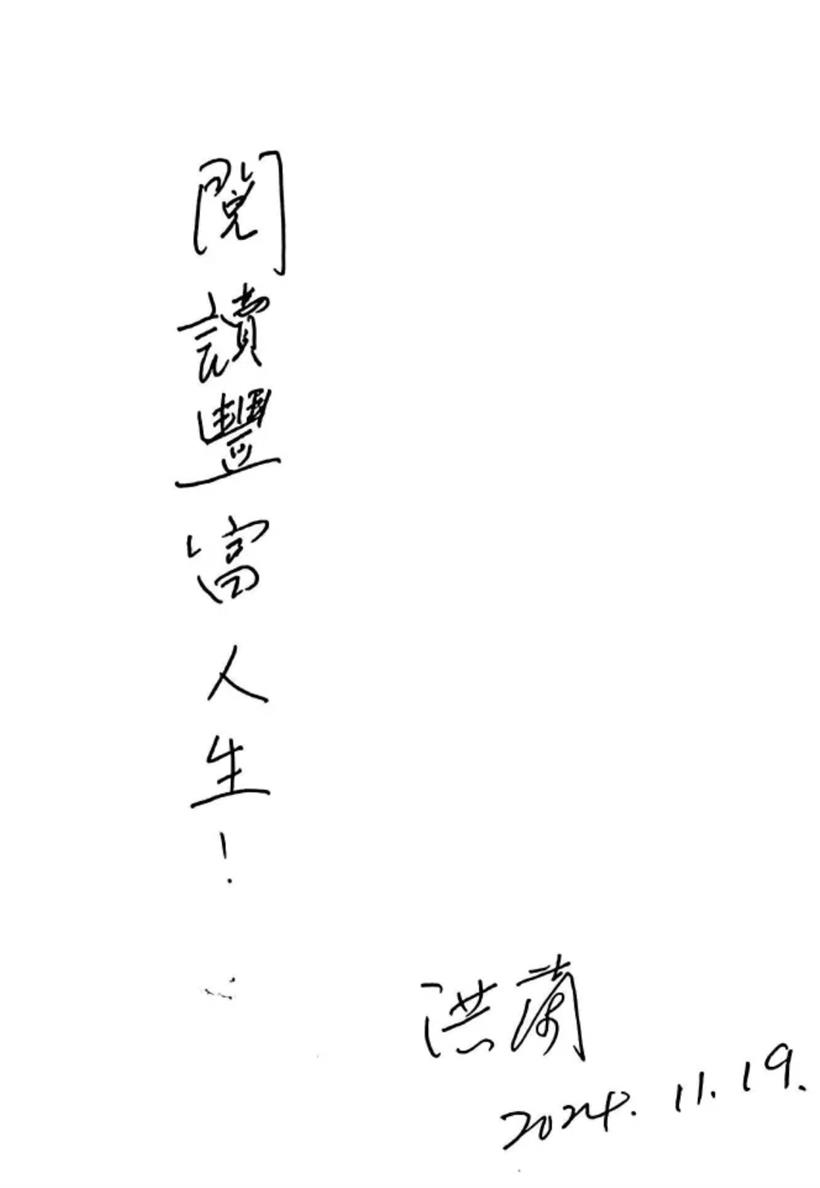 閱讀豐富人生！
洪蘭
2024.11.19.